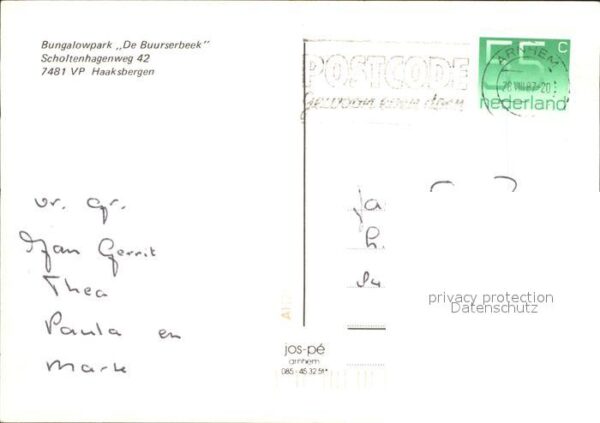 Bungalowpark „De Buurserbeek"
Scholtenhagenweg 42
7481 VP Haaksbergen
POSTCODE
Gewoon even doen
ARNHEM
55 c
nederland
vr. gr.
Jan Gerrit
Thea
Paula en
Mark
privacy protection
Datenschutz
jos-pé
arnhem
085-45 32 51*